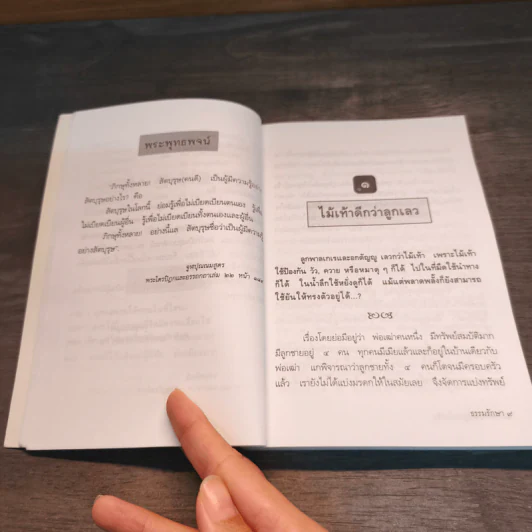 พระพุทธพจน์
"ภิกษุทั้งหลาย สัตบุรุษ(คนดี) เป็นผู้มีความรู้
สัตบุรุษอย่างไร? คือ
สัตบุรุษในโลกนี้ ย่อมรู้เพื่อไม่เบียดเบียนตนเอง รู้เพื่อ
ไม่เบียดเบียนผู้อื่น รู้เพื่อไม่เบียดเบียนทั้งตนเองและผู้อื่น
ภิกษุทั้งหลาย อย่างนี้แล สัตบุรุษชื่อว่าเป็นผู้มีความรู้
อย่างสัตบุรุษ"
จูฬปุณณมสูตร
พระไตรปิฎกและอรรถกถาเล่ม ๒๒ หน้า
๑
ไม้เท้าดีกว่าลูกเลว
ลูกพาลเกเรและอกตัญญู เลวกว่าไม้เท้า เพราะไม้เท้า
ใช้ป้องกัน วัว, ควาย หรือหมาดุ ๆ ก็ได้ ไปในที่มืดใช้นำทาง
ก็ได้ ในน้ำลึกใช้หยั่งดูก็ได้ แม้แต่พลาดพลั้งก็ยังสามารถ
ใช้ยันให้ทรงตัวอยู่ได้...?
เรื่องโดยย่อมีอยู่ว่า พ่อเฒ่าคนหนึ่ง มีทรัพย์สมบัติมาก
มีลูกชายอยู่ ๔ คน ทุกคนมีเมียแล้วและก็อยู่ในบ้านเดียวกับ
พ่อเฒ่า แกพิจารณาว่าลูกชายทั้ง ๔ คนก็โตจนมีครอบครัว
แล้ว เรายังไม่ได้แบ่งมรดกให้ในสมัยเลย จึงจัดการแบ่งทรัพย์
ธรรมรักษา ๙